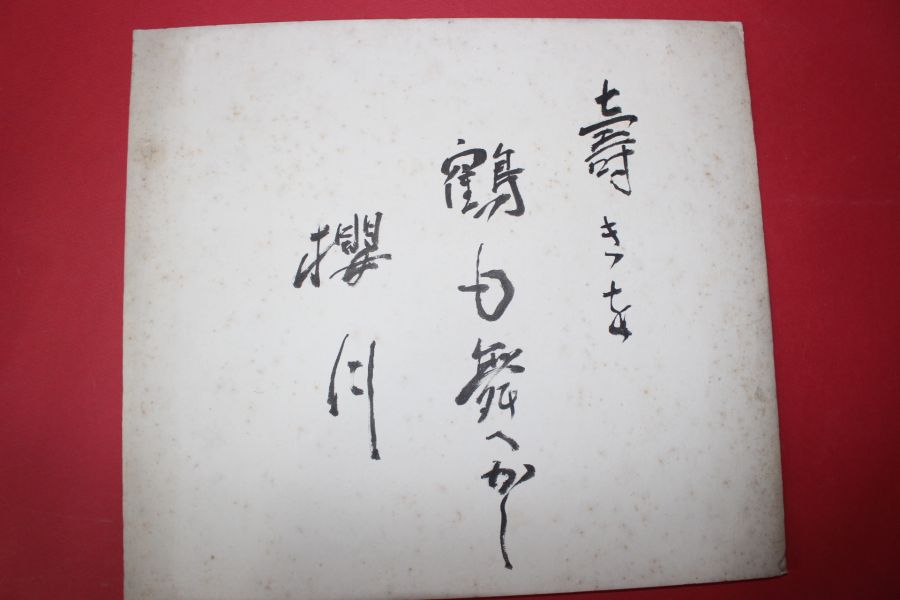 壽きを
鶴も舞へかし
櫻川